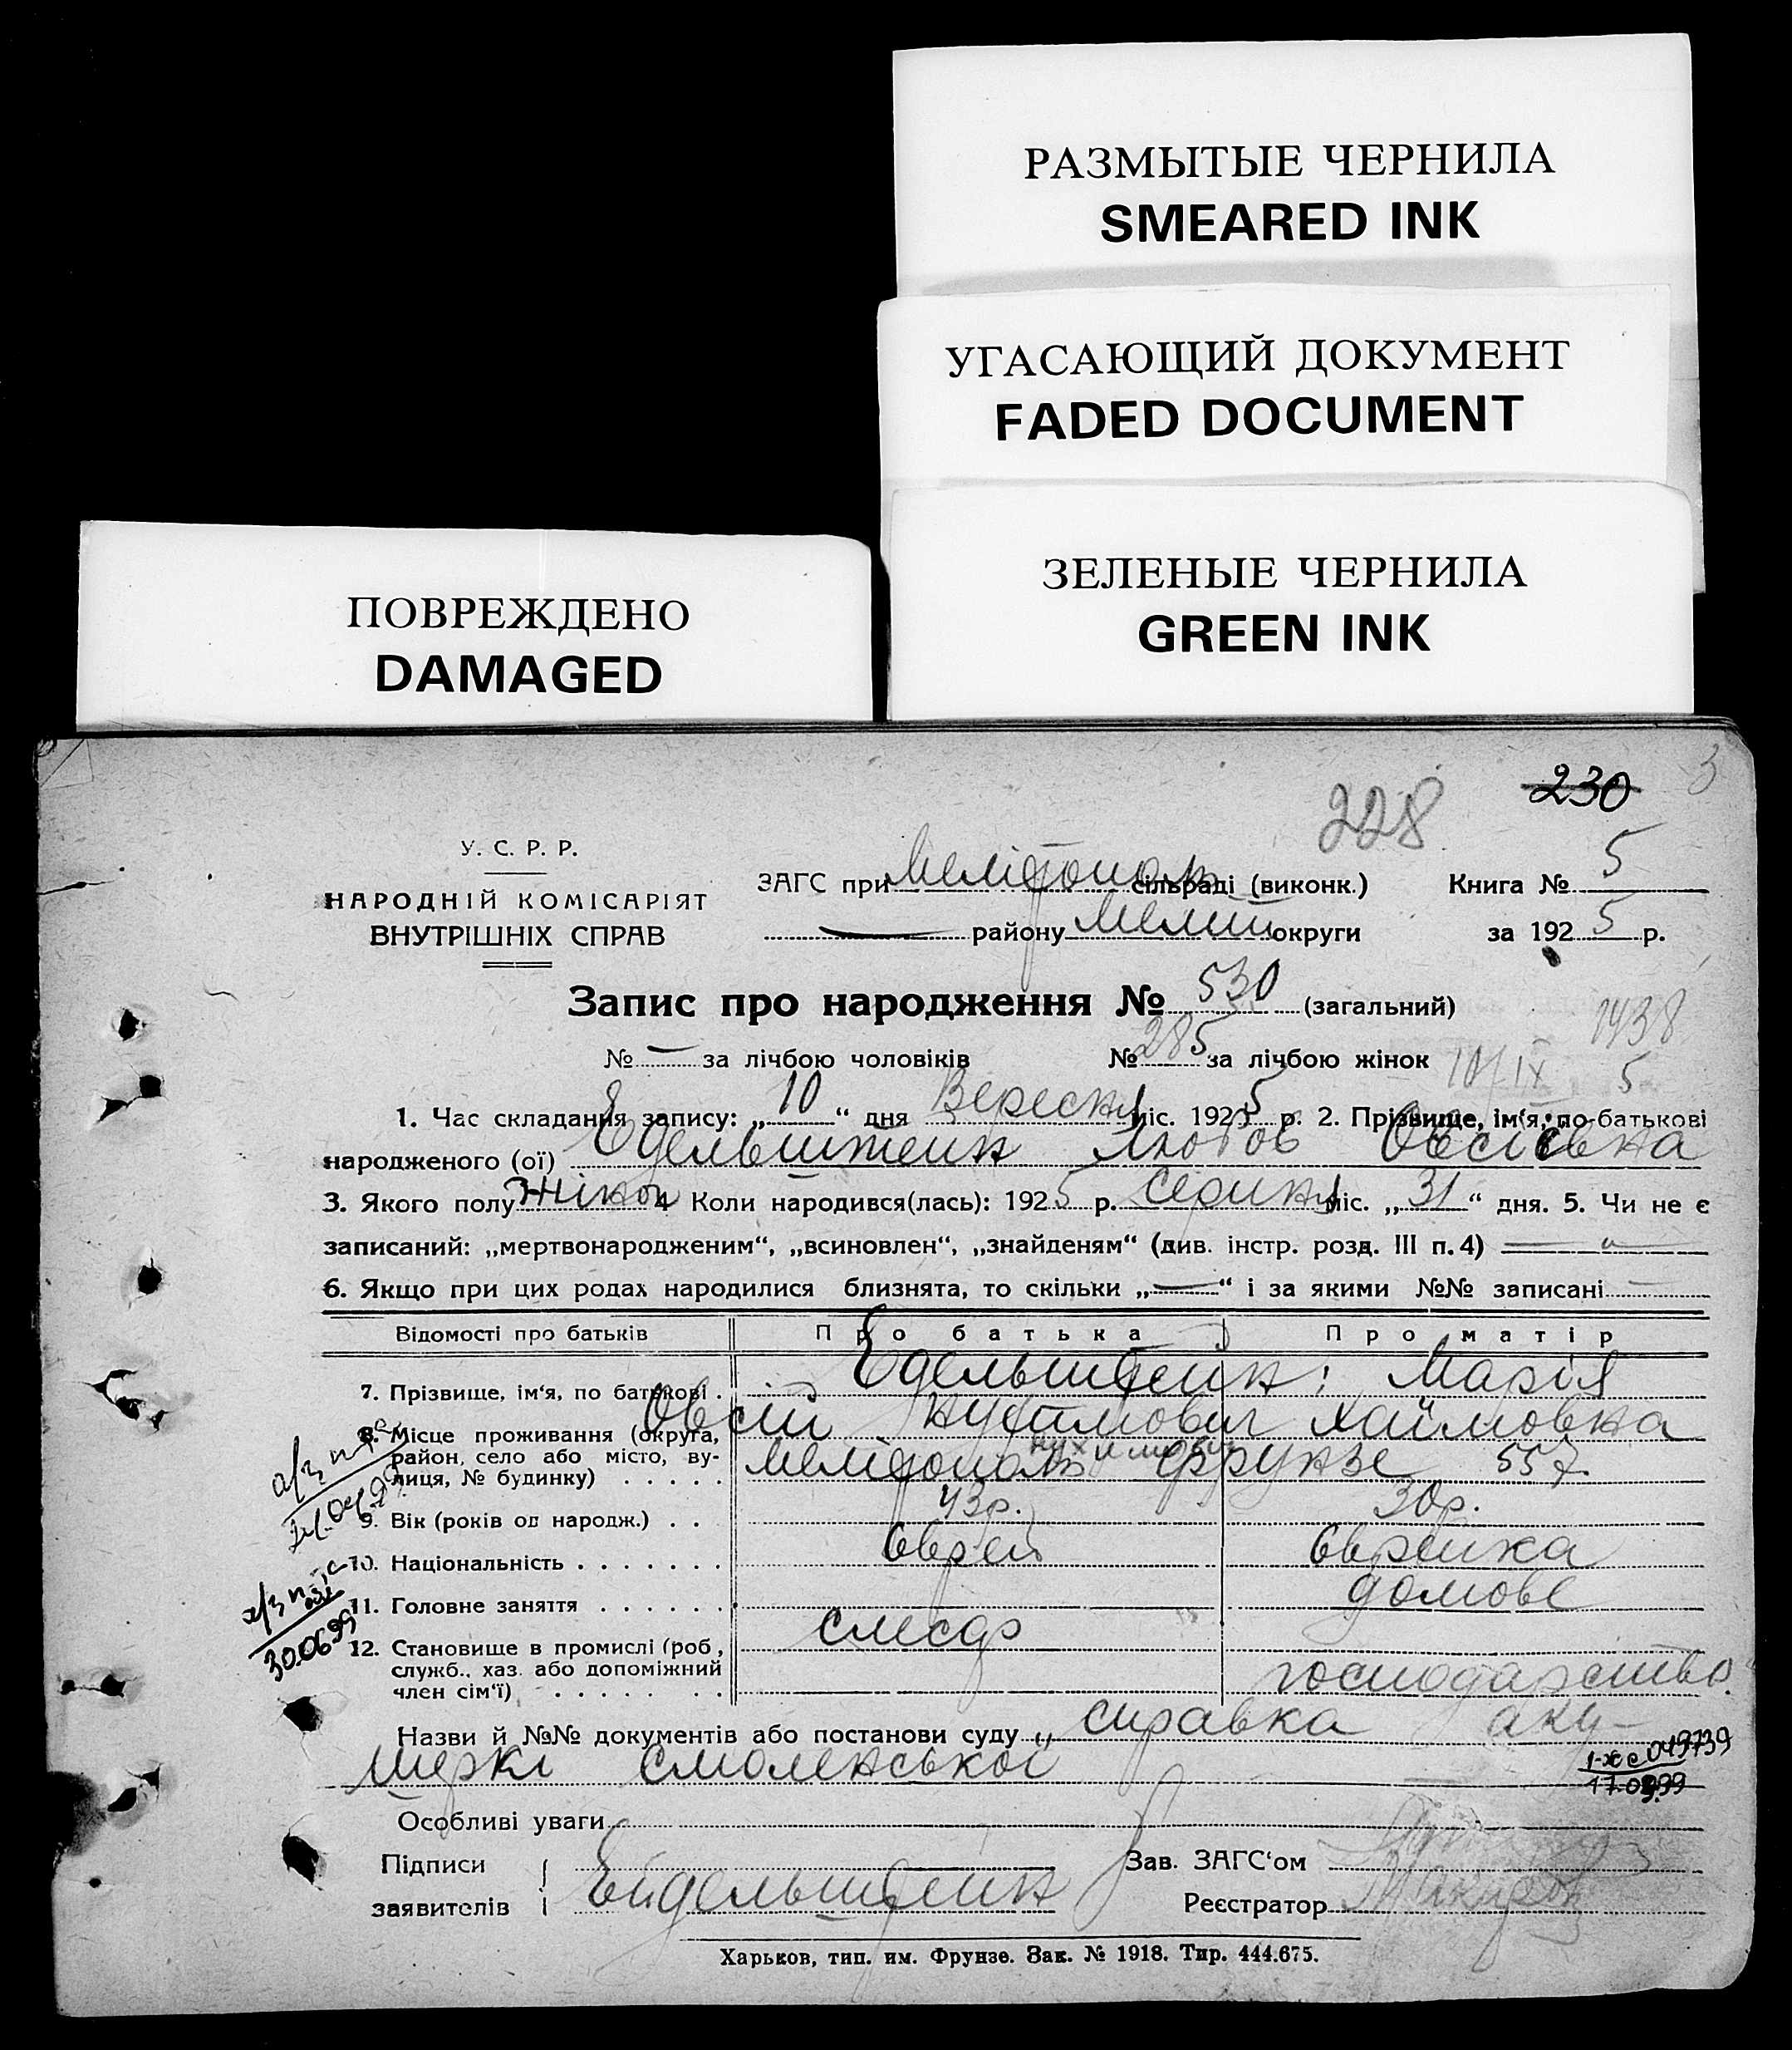 РАЗМЫТЫЕ ЧЕРНИЛА
SMEARED INK
УГАСАЮЩИЙ ДОКУМЕНТ
FADED DOCUMENT
ЗЕЛЕНЫЕ ЧЕРНИЛА
GREEN INK
ПОВРЕЖДЕНО
DAMAGED
230 3
228
У. С. Р. Р.
НАРОДНІЙ КОМІСАРІЯТ
ВНУТРІШНІХ СПРАВ
ЗАГС при Мелітополь сільраді (виконк.) Книга № 5
— району Меліт округи за 1925 р.
Запис про народження № 530 (загальний)
1438
№ — за лічбою чоловіків № 285 за лічбою жінок 10/IX 5
1. Час складання запису: „10“ дня Вересня міс. 1925 р. 2. Прізвище, ім‘я, по-батькові
народженого (ої) Едельштейн Любов Овсіївна
3. Якого полу Жіноч 4 Коли народився(лась): 1925 р. Серпня міс. „31“ дня. 5. Чи не є
записаний: „мертвонародженим“, „всиновлен“, „знайденям“ (див. інстр. розд. III п. 4) — „ —
6. Якщо при цих родах народилися близнята, то скільки „—“ і за якими №№ записані —
Відомості про батьків Про батька Про матір
7. Прізвище, ім‘я, по батькові . Едельштейн Марія
Овсій Нухимович Хаймовна
8. Місце проживання (округа,
район, село або місто, ву-
лиця, № будинку) . . . . . Мелітополь Фрунзе 557
Нухимович
9. Вік (років од народж.) . . 43р. 30р.
10. Національність . . . . . . . Єврей Єврейка
11. Головне заняття . . . . . . домове
12. Становище в промислі (роб., слесар
служб., хаз. або допоміжний
член сім‘ї) . . . . . . . господарство
30.06.99
Назви й №№ документів або постанови суду „ справка аку-
шерки Смоленської
1-жс 049739
17.0999
Особливі уваги
Підписи
заявителів Ейдельштейн
Зав. ЗАГС‘ом
Реєстратор
Харьков, тип. им. Фрунзе. Зак. № 1918. Тир. 444.675.